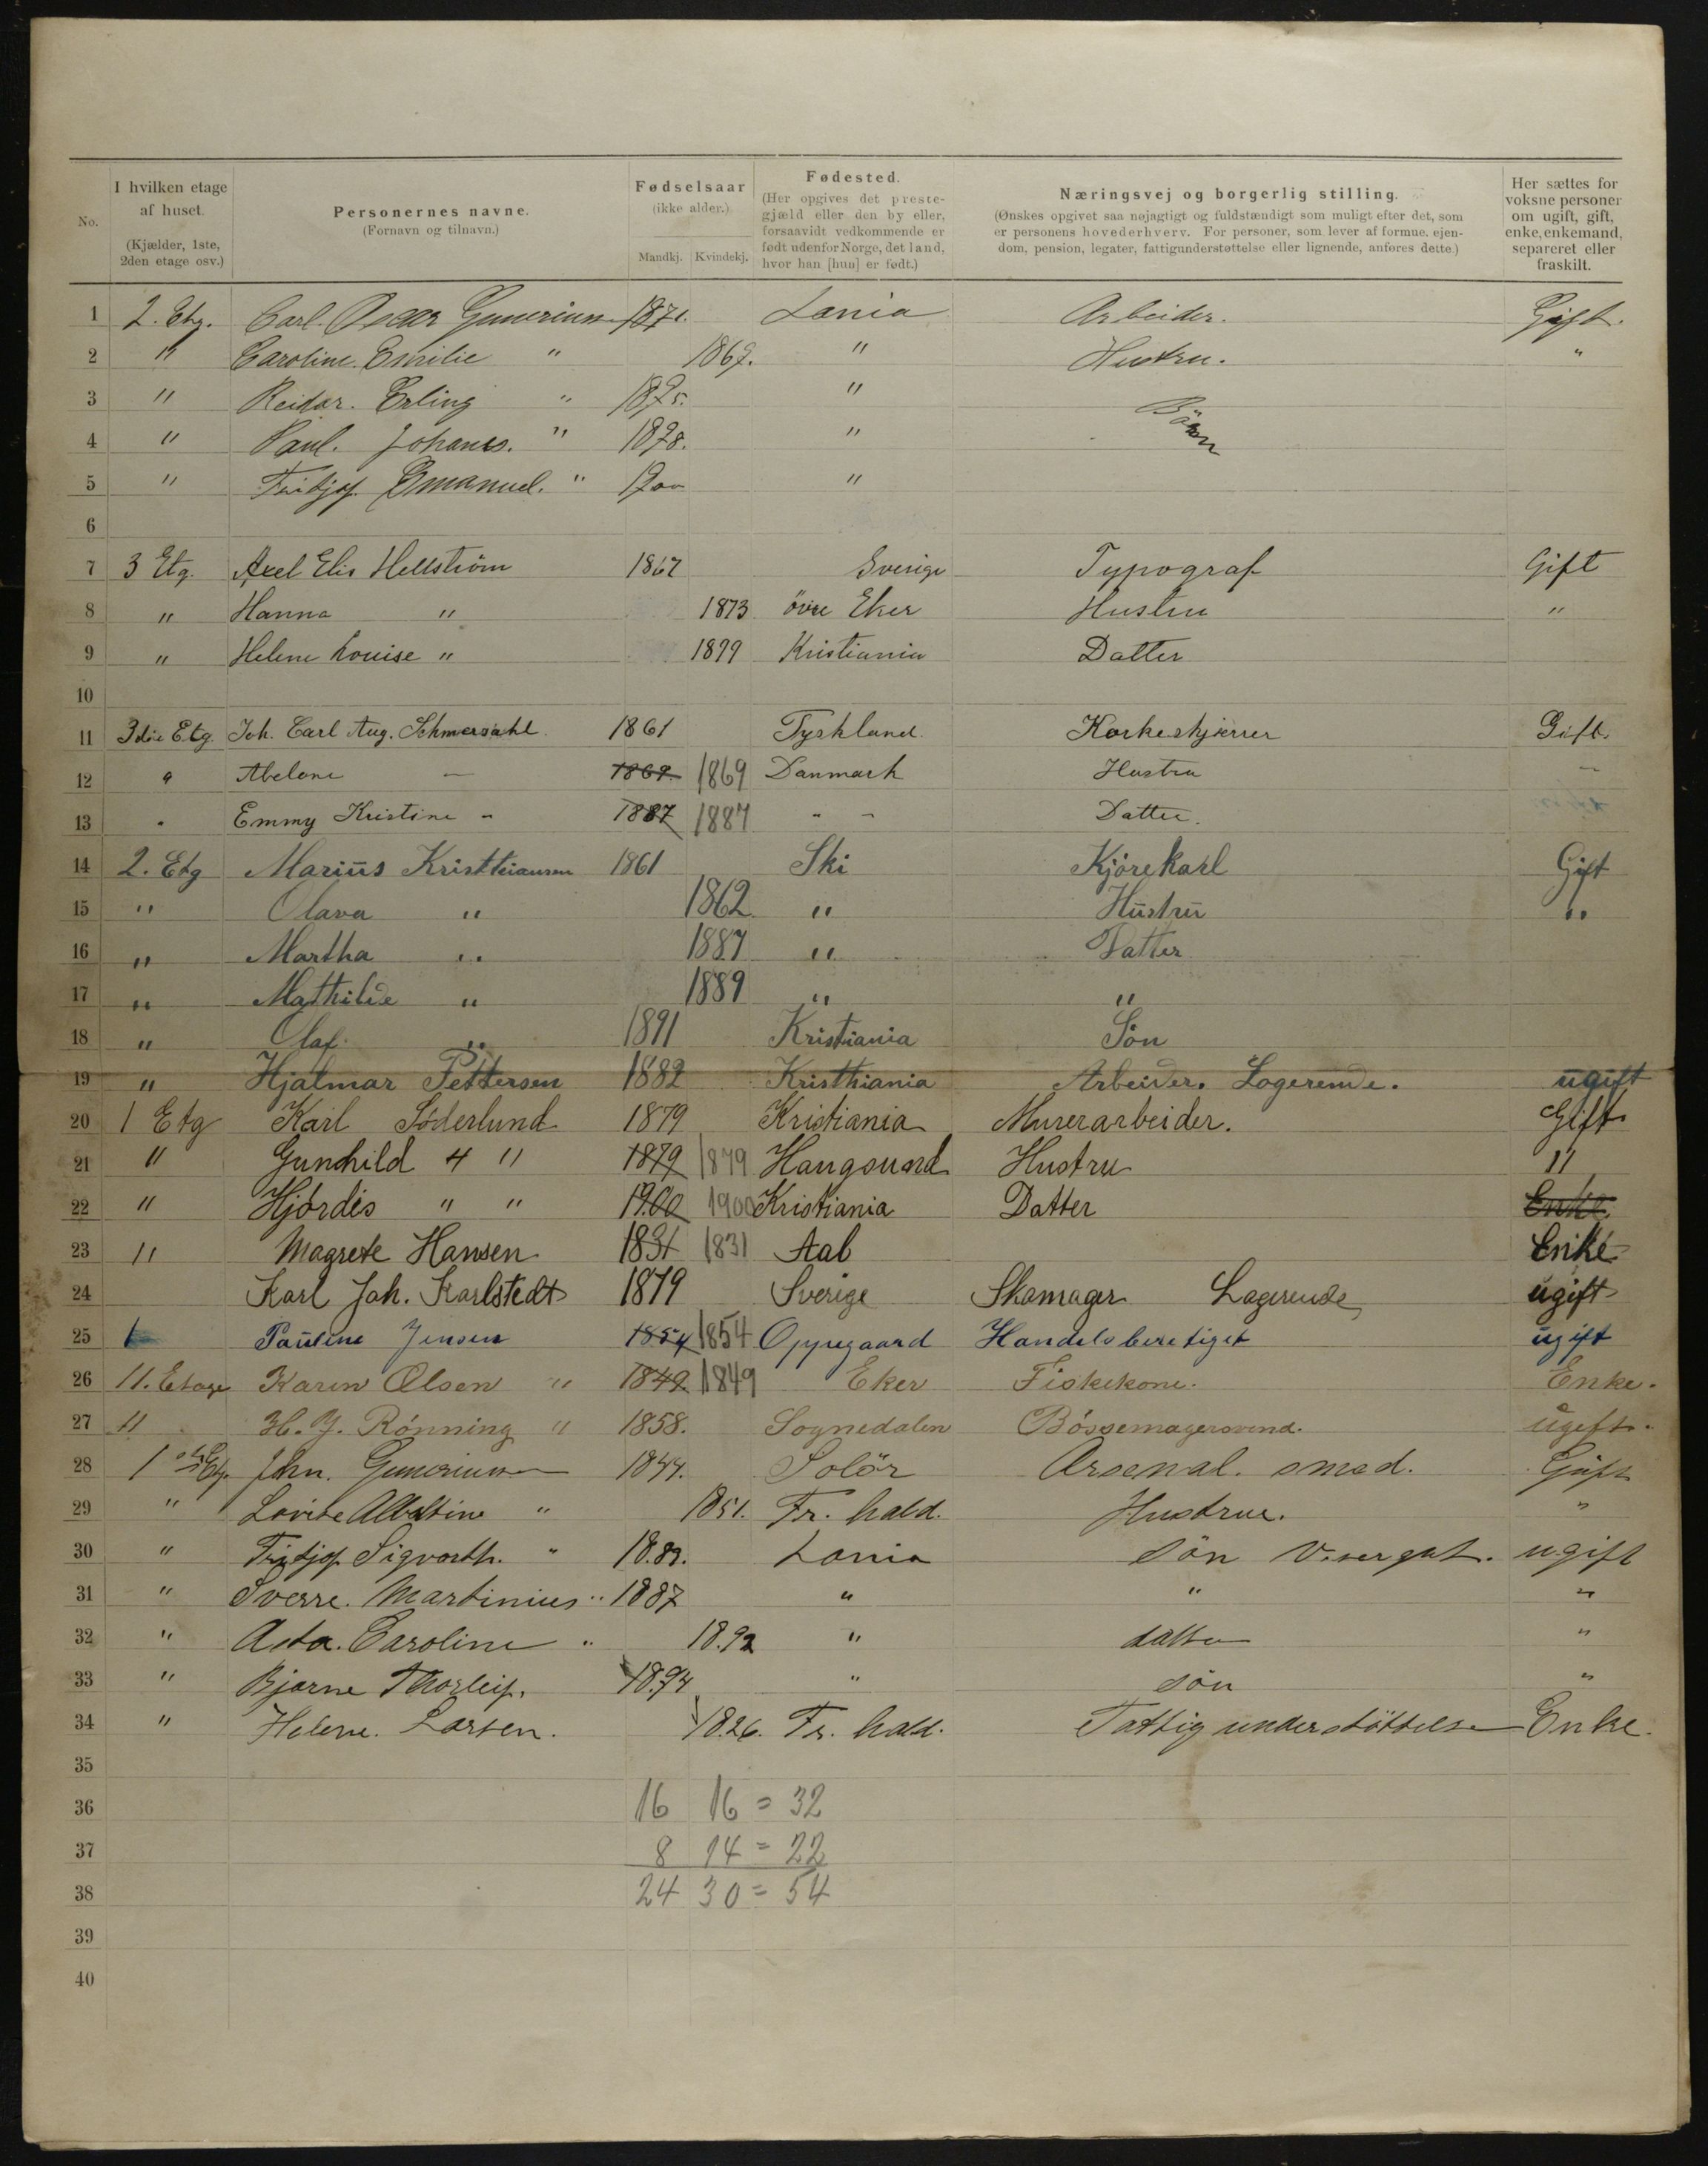 No. I hvilken etage af huset. (Kjælder, 1ste, 2den etage osv.) Personernes navne. (Fornavn og tilnavn.) Fødselsaar (ikke alder.) Mandkj. Kvindekj. Fødested. (Her opgives det prestegjæld eller den by eller, forsaavidt vedkommende er født udenfor Norge, det land, hvor han [hun] er født.) Næringsvej og borgerlig stilling. (Ønskes opgivet saa nøjagtigt og fuldstændigt som muligt efter det, som er personens hovederhverv. For personer, som lever af formue, ejendom, pension, legater, fattigunderstøttelse eller lignende, anføres dette.) Her sættes for voksne personer om ugift, gift, enke, enkemand, separeret eller fraskilt.
1 2. Etg. Carl. Oscar Gunerius 1871. Xania Arbeider. Gift.
2 " Caroline. Emilie " 1869. " Hustru. "
3 " Reidar. Erling " 1895. " Börn
4 " Paul. Johanes. " 1898. "
5 " Fridjof. Emanuel. " 1900 "
6
7 3 Etg. Axel Elis Hellström 1867 Sverige Typograf Gift
8 " Hanna " 1873 övre Eker Hustru "
9 " Helene Louise " 1899 Kristiania Datter
10
11 3die Etg. Joh. Carl Aug. Schmersahl. 1861 Tyskland Korkeskjærer Gift.
12 " Abelone — 1869 1869 Danmark Hustru —
13 " Emmy Kristine " 1887 1887 " " Datter.
14 2. Etg Marius Kristhiansen 1861 Ski Kjörekarl Gift
15 " Olava " 1862 " Hustru "
16 " Martha " 1887 " Datter
17 " Mathilde " 1889 " "
18 " Olaf. " 1891 Kristiania Sön
19 " Hjalmar Pettersen 1882 Kristhiania Arbeider. Logerende. ugift
20 1 Etg Karl Söderlund 1879 Kristiania Murerarbeider. Gift
21 " Gunhild " " 1879 1879 Haugsund Hustru "
22 " Hjördis " " 1900 1900 Kristiania Datter Enke
23 " Magrete Hansen 1831 1831 Aal Enke
24 Karl Joh. Karlstedt 1879 Sverige Skomager Lagerende ugift
25 1 Pauline Jensen 1854 1854 Oppegaard Handelsberetiget ugift
26 11. Etage Karen Olsen " 1849. 1849 Eker Fiskekone. Enke.
27 11 H. J. Rönning " 1858. Sognedalen Bössemagersvend. ugift.
28 1ste Etg. Jhn. Gunerius 1844. Solör Arsenal. smed. Gift
29 " Lovise Albertine " 1851. Fr. hald. Hustrue. "
30 " Fridjof. Sigvarth. " 18.89. Xania sön Visergut. ugift
31 " Sverre. Martinius " 1887 " " "
32 " Asta. Caroline " 18.92 " datter "
33 " Bjarne Thorleif. 18.94 " sön "
34 " Helene. Larsen. 1826. Fr. hald. Fattigunderstöttelse Enke.
35
36 16 16 = 32
37 8 14 = 22
38 24 30 = 54
39
40